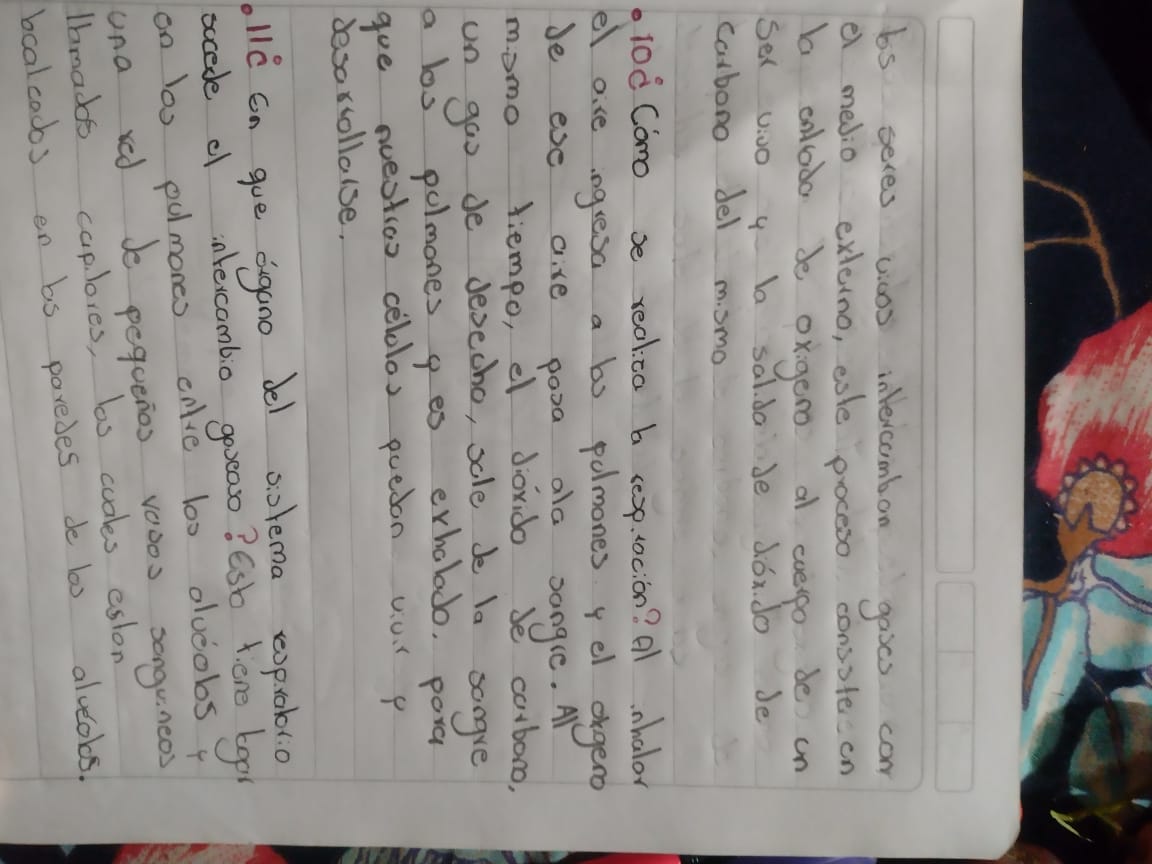 los seres vivos intercambian gases con
el medio externo, este proceso consiste en
la entrada de oxigeno al cuerpo de un
ser vivo y la salida de dióxido de
carbono del mismo
• 10¿ Cómo se realiza la respiración? Al inhalar
el aire ingresa a los pulmones y el oxigeno
de ese aire pasa ala sangre. Al
mismo tiempo, el dióxido de carbono,
un gas de desecho, sale de la sangre
a los pulmones y es exhalado, para
que nuestras células puedan vivir y
desarrollarse.
• 11¿ En que órgano del sistema respiratorio
sucede el intercambio gaseoso? Esto tiene lugar
en los pulmones entre los alvéolos y
una red de pequeños vasos sanguineos
llamados capilares, los cuales estan
localcados en los paredes de los alvéolos.